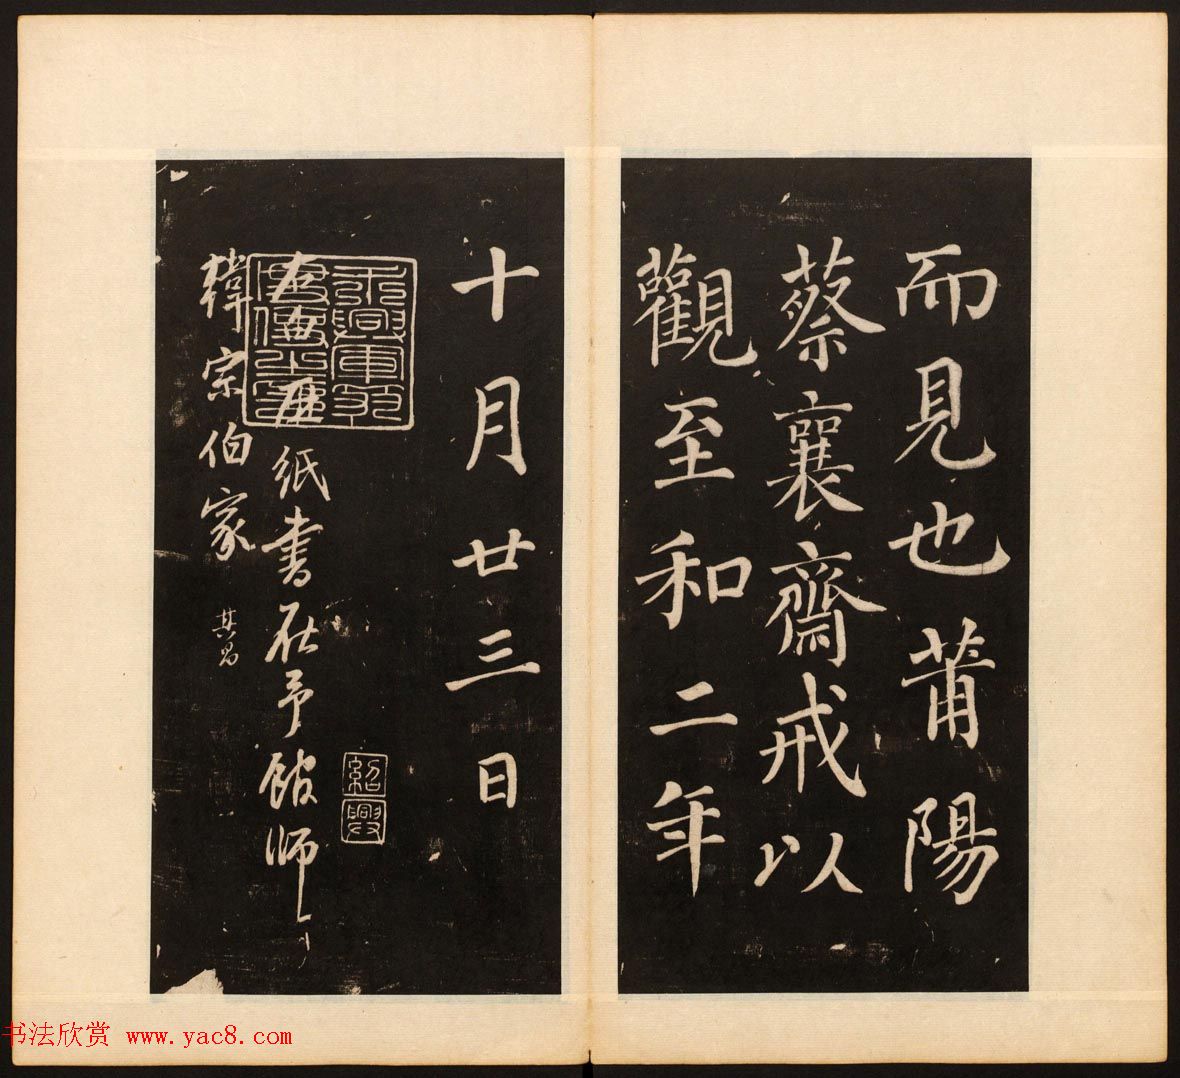 而見也莆陽
蔡襄齋戒以
觀至和二年
十月廿三日
永興軍節
度使之印
紹興
右 紙書在予館師
韓宗伯家 其昌
书法欣赏 www.yac8.com